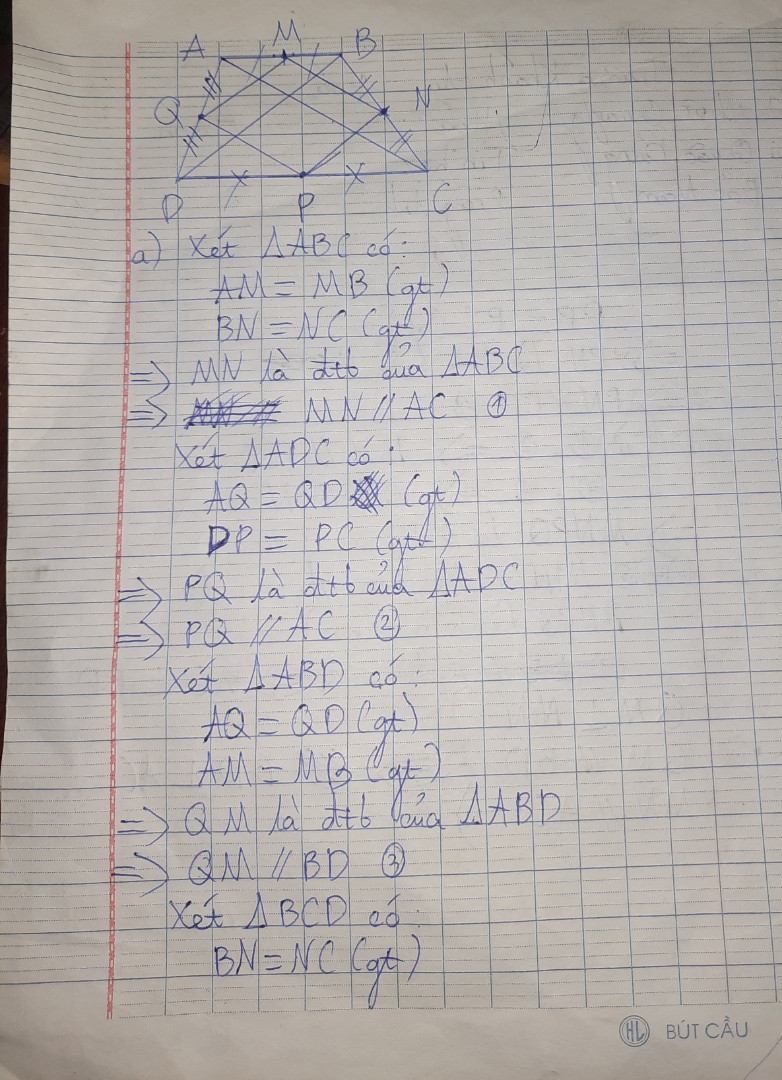 A M B
Q N
D P C
a) Xét ΔABC có:
AM = MB (gt)
BN = NC (gt)
=> MN là đtb của ΔABC
=> MN // AC ①
Xét ΔADC có:
AQ = QD (gt)
DP = PC (gt)
=> PQ là đtb của ΔADC
=> PQ // AC ②
Xét ΔABD có:
AQ = QD (gt)
AM = MB (gt)
=> QM là đtb của ΔABD
=> QM // BD ③
Xét ΔBCD có:
BN = NC (gt)
HL BÚT CẦU